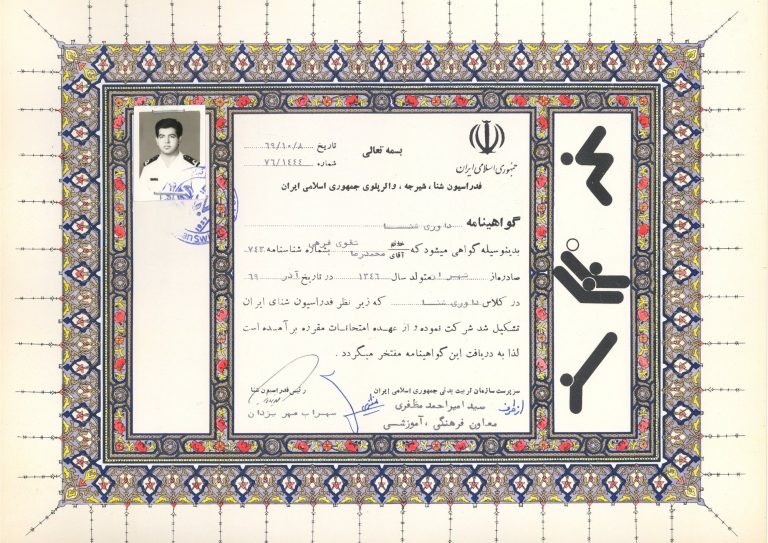 بسمه تعالی
تاریخ ۶۹/۱۰/۸
شماره ۷۶/۱۴۴۴
جمهوری اسلامی ایران
فدراسیون شنا ، شیرجه ، واترپلوی جمهوری اسلامی ایران
گواهینامه داوری شنا
بدینوسیله گواهی میشود که خانم آقای محمدرضا تقوی فرهی بشماره شناسنامه ۷۴۳
صادره از تهران متولد سال ۱۳۴۶ در تاریخ آذر ۶۹
در کلاس داوری شنا که زیر نظر فدراسیون شنای ایران
تشکیل شد شرکت نموده و از عهده امتحانات مقرره برآمده است
لذا به دریافت این گواهینامه مفتخر میگردد .
سرپرست سازمان تربیت بدنی جمهوری اسلامی ایران
از طرف سید امیراحمد مظفری
معاون فرهنگی ، آموزشی
رئیس فدراسیون شنا
سهراب مهر یزدان